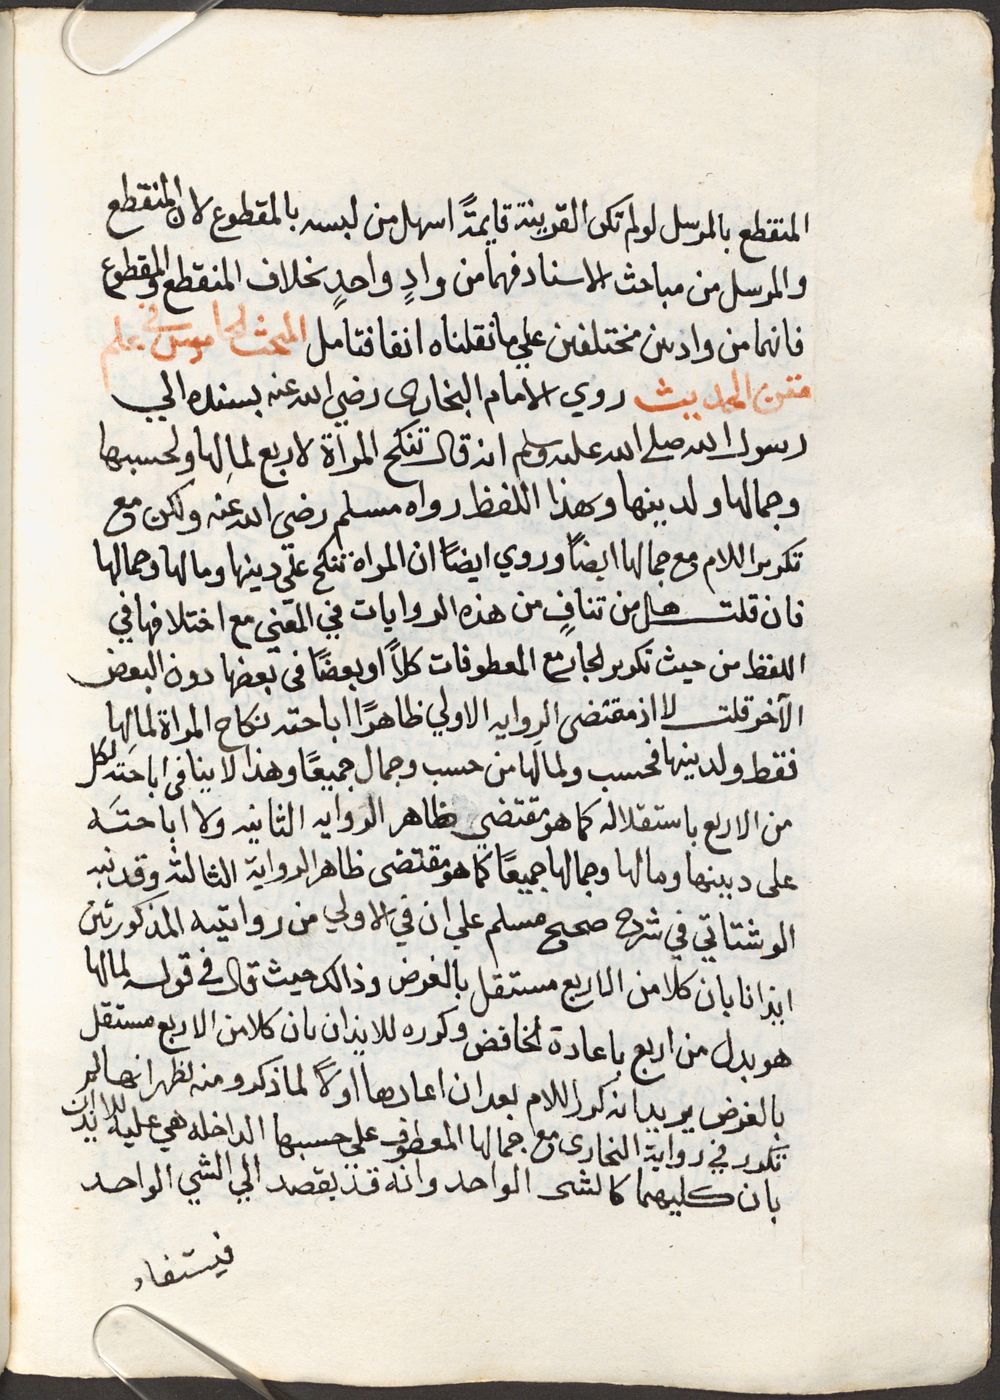 المنقطع بالمرسل لو لم تكن القرينة قايمةً اسهل من لبسه بالمقطوع لان المنقطع
والمرسل من مباحث الاسناد فهما من وادٍ واحدٍ بخلاف المنقطع والمقطوع
فانهما من واديين مختلفين علي ما نقلناه انفا فتامل المبحث الخامس في علم
متن الحديث روي الامام البخاري رضي الله عنه بسنده الي
رسول الله صلي الله عليه وسلم انه قال تنكح المراة لاربع لمالِها ولحسبها
وجمالها ولدينها وبهذا اللفظ رواه مسلم رضي الله عنه ولكن مع
تكرير اللام مع جمالها ايضاً وروي ايضاً ان المراة تنكح علي دينها ومالها وجمالها
فان قلت هل من تنافٍ من هذه الروايات في المعني مع اختلافها في
اللفظ من حيث تكرير الجار مع المعطوفات كلاً او بعضاً في بعضها دون البعض
الآخر قلت لا اذ مقتضي الرِوايه الاولي ظاهرًا اباحته نكاح المراة لمالِها
فقط ولدينها فحسب ولما لها من حسب وجمال جميعًا وهذا لا ينافي اباحته لكل
من الاربع باستقلاله كما هو مقتضي ظاهر الروايه الثانيه ولا اباحتَه
علي دينها ومالها وجمالها جميعًا كما هو مقتضي ظاهر الرواية الثالثه وقد نبه
الوشتاتي في شرح صحيح مسلم علي ان في الاولي من روايتيه المذكورتين
ايذانا بان كلا من الاربع مستقل بالغرض وذالك حيث قال في قوله لمالها
هو بدل من اربع باعادة الخافض وكرره للايذان بان كلا من الاربع مستقل
بالغرض يريد انه كرر اللام بعد ان اعادها اولاً لما ذكر ومنه يظهر انها لم
تتكرر في رواية البخاري مع جمالها المعطوف علي حسبها الداخله هي عليه للايذان
بان كليهما كالشي الواحد وانه قد يقصد الي الشي الواحد
فيستفاد